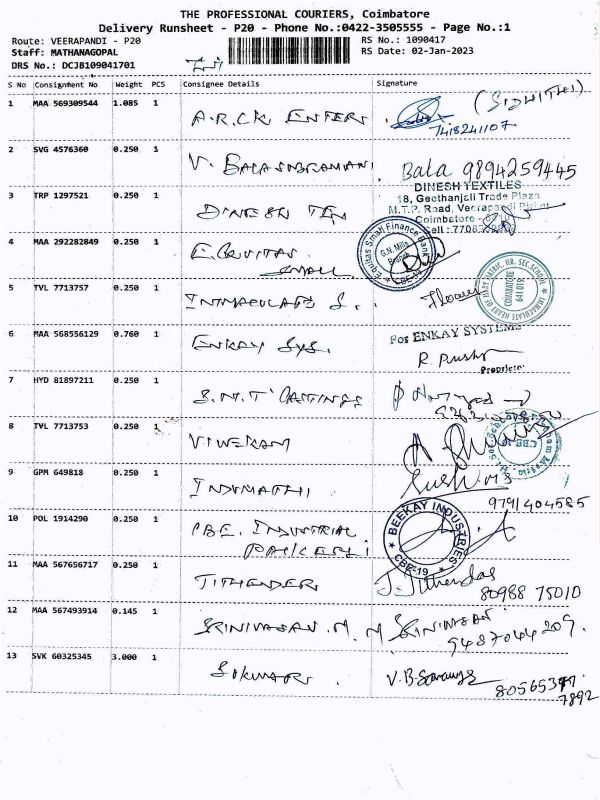 THE PROFESSIONAL COURIERS, Coimbatore
Delivery Runsheet - P20 - Phone No.:0422-3505555 - Page No.:1
Route: VEERAPANDI - P20
RS No.: 1090417
Staff: MATHANAGOPAL
RS Date: 02-Jan-2023
DRS No.: DCJB109041701
S No Consignment No Weight PCS Consignee Details Signature
1 MAA 569309544 1.085 1 A.R.C.K ENTERS
7418241107
2 SVG 4576360 0.250 1 V. BALASUBRAMANI Bala 9894259445
DINESH TEXTILES
18, Geethanjali Trade Plaza
3 TRP 1297521 0.250 1 DINESH TEX
M.T.P. Road, Veerapandi
Coimbatore
Cell : 7706
4 MAA 292282849 0.250 1 EQUITAS
SMALL
Equitas Small Finance Bank
G.N. Mills
Branch
5 TVL 7713757 0.250 1 IMMACULATE
IMMACULATE HEART OF MARY MATRIC. HR. SEC. SCHOOL
COIMBATORE
641 019
6 MAA 568556129 0.760 1 ENKAY SYS.
For ENKAY SYSTEMS
Proprietor
7 HYD 81897211 0.250 1 S.N.T CASTINGS
8 TVL 7713753 0.250 1 VIVEKAM
9 GPM 649818 0.250 1 INDUMATHI
9791404585
10 POL 1914290 0.250 1 CBE. INDUSTRIAL
BEEKAY INDUSTRIES
CBE-19
11 MAA 567656717 0.250 1 JITHENDER J. Jithendas
80988 75010
12 MAA 567493914 0.145 1 SRINIVASAN. M. M. SRINIVASAN
9487044209.
13 SVK 60325345 3.000 1 SUKUMAR V.B.Saranya
7892